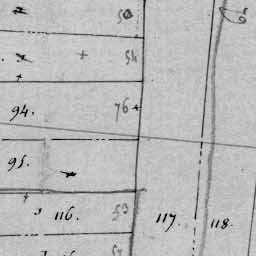 50
54
94. 76
95.
116. 53 117. 118.